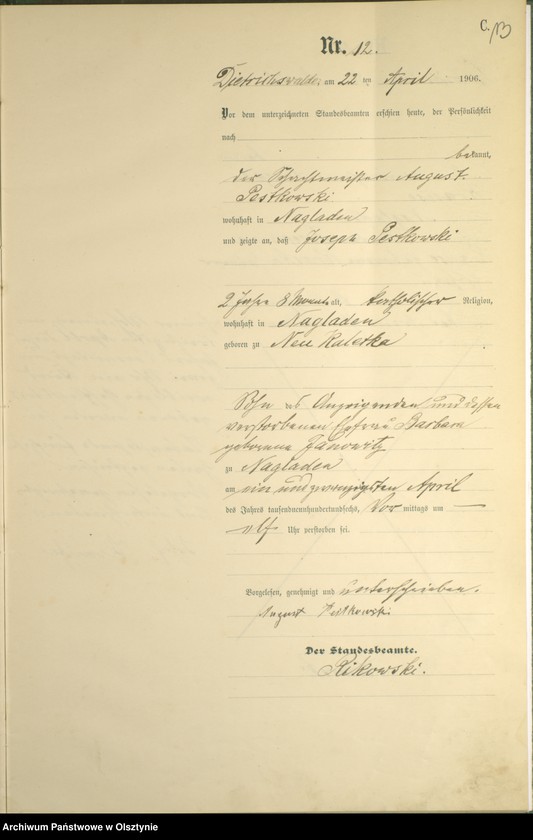 C.
13
Nr. 12.
Dietrichswalde am 22 ten April 1906.
Vor dem unterzeichneten Standesbeamten erschien heute, der Persönlichkeit
nach
bekannt,
der Schachtmeister August
Pestkowski
wohnhaft in Nagladen
und zeigte an, daß Joseph Pestkowski
2 Jahre 8 Monate alt, katholischer Religion,
wohnhaft in Nagladen
geboren zu Neu Kaletka
Sohn des Anzeigenden und dessen
verstorbenen Ehefrau Barbara
geborene Janowitz
zu Nagladen
am ein und zwanzigsten April
des Jahres tausendneunhundertundsechs, Vor mittags um
elf Uhr verstorben sei.
Vorgelesen, genehmigt und unterschrieben.
August Pestkowski
Der Standesbeamte.
Rikowski.
Archiwum Państwowe w Olsztynie